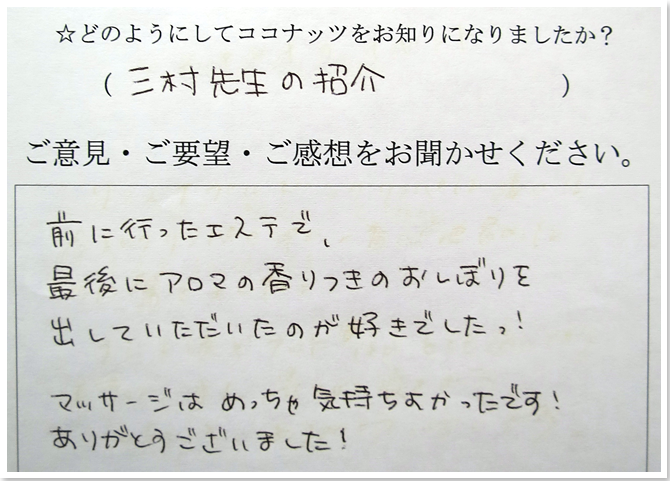 ☆どのようにしてココナッツをお知りになりましたか？
（三村先生の紹介）
ご意見・ご要望・ご感想をお聞かせください。
前に行ったエステで、
最後にアロマの香りつきのおしぼりを
出していただいたのが好きでしたっ！
マッサージはめっちゃ気持ちよかったです！
ありがとうございました！